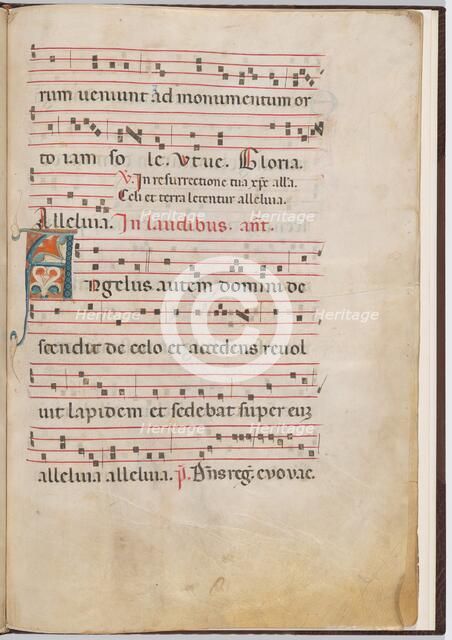 rum veniunt ad monumentum or
to iam so le. Vt ue. Gloria.
V. In resurrectione tua xp̄e alla.
Celi et terra letentur alleluia.
Alleluia. In laudibus. ant.
Angelus autem domini de
scendit de celo et accedens revol
vit lapidem et sedebat super euꝫ
alleluia alleluia. p̄. Dn̄s reg̅. evovae.
Heritage Heritage Heritage
Heritage Heritage Heritage
Heritage Heritage Heritage
Heritage Heritage Heritage